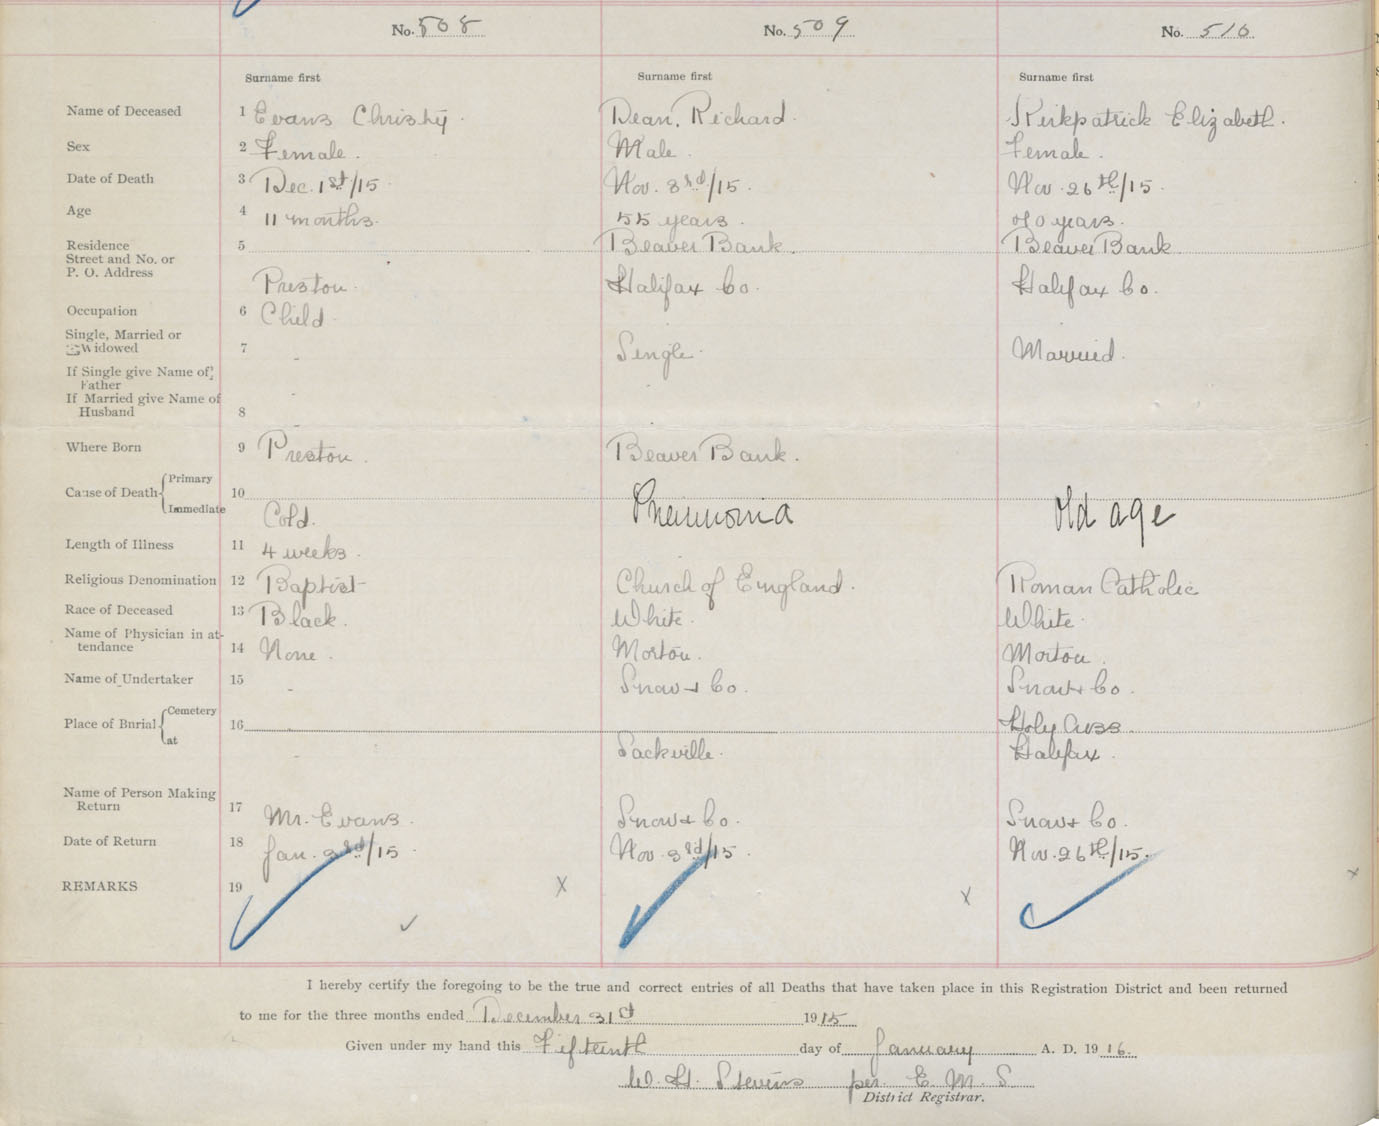 No. 508 No. 509 No. 510
Surname first Surname first Surname first
Name of Deceased 1 Evans Christy. Dean, Richard. Kirkpatrick Elizabeth.
Sex 2 Female. Male. Female.
Date of Death 3 Dec. 1st/15. Nov. 3rd/15. Nov. 26th/15.
Age 4 11 months. 55 years. years.
Residence 5 Beaver Bank. Beaver Bank
Street and No. or
P. O. Address Preston. Halifax Co. Halifax Co.
Occupation 6 Child.
Single, Married or
Widowed 7 - Single. Married.
If Single give Name of
Father
If Married give Name of
Husband 8
Where Born 9 Preston. Beaver Bank.
Primary
Cause of Death 10
Immediate Cold. Pneumonia old age
Length of Illness 11 4 weeks.
Religious Denomination 12 Baptist Church of England. Roman Catholic
Race of Deceased 13 Black. White. White.
Name of Physician in at-
tendance 14 None. Morton. Morton.
Name of Undertaker 15 - Snow & Co. Snow & Co.
Cemetery
Place of Burial 16 Holy Cross.
at - Sackville. Halifax.
Name of Person Making
Return 17 Mr. Evans. Snow & Co. Snow & Co.
Date of Return 18 Jan. 3rd/15. Nov. 3rd/15. Nov. 26th/15.
REMARKS 19 X X X
I hereby certify the foregoing to be the true and correct entries of all Deaths that have taken place in this Registration District and been returned
to me for the three months ended December 31st 1915
Given under my hand this Fifteenth day of January A. D. 1916.
W. H. Stevens per. E. M. S
District Registrar.